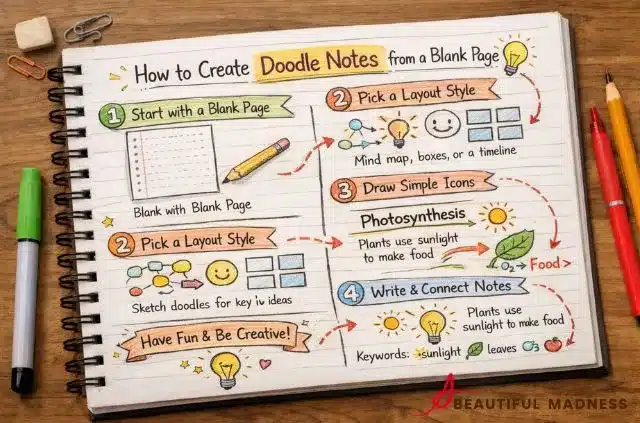 How to Create Doodle Notes from a Blank Page
1 Start with a Blank Page
Blank with Blank Page
2 Pick a Layout Style
Sketch doodles for key iv ideas
Have Fun & Be Creative!
2 Pick a Layout Style
Mind map, boxes, or a timeline
3 Draw Simple Icons
Photosynthesis
Plants use sunlight
to make food
O₂ → Food >
4 Write & Connect Notes
Plants use
sunlight to make food
Keywords: sunlight leaves
BEAUTIFUL MADNESS